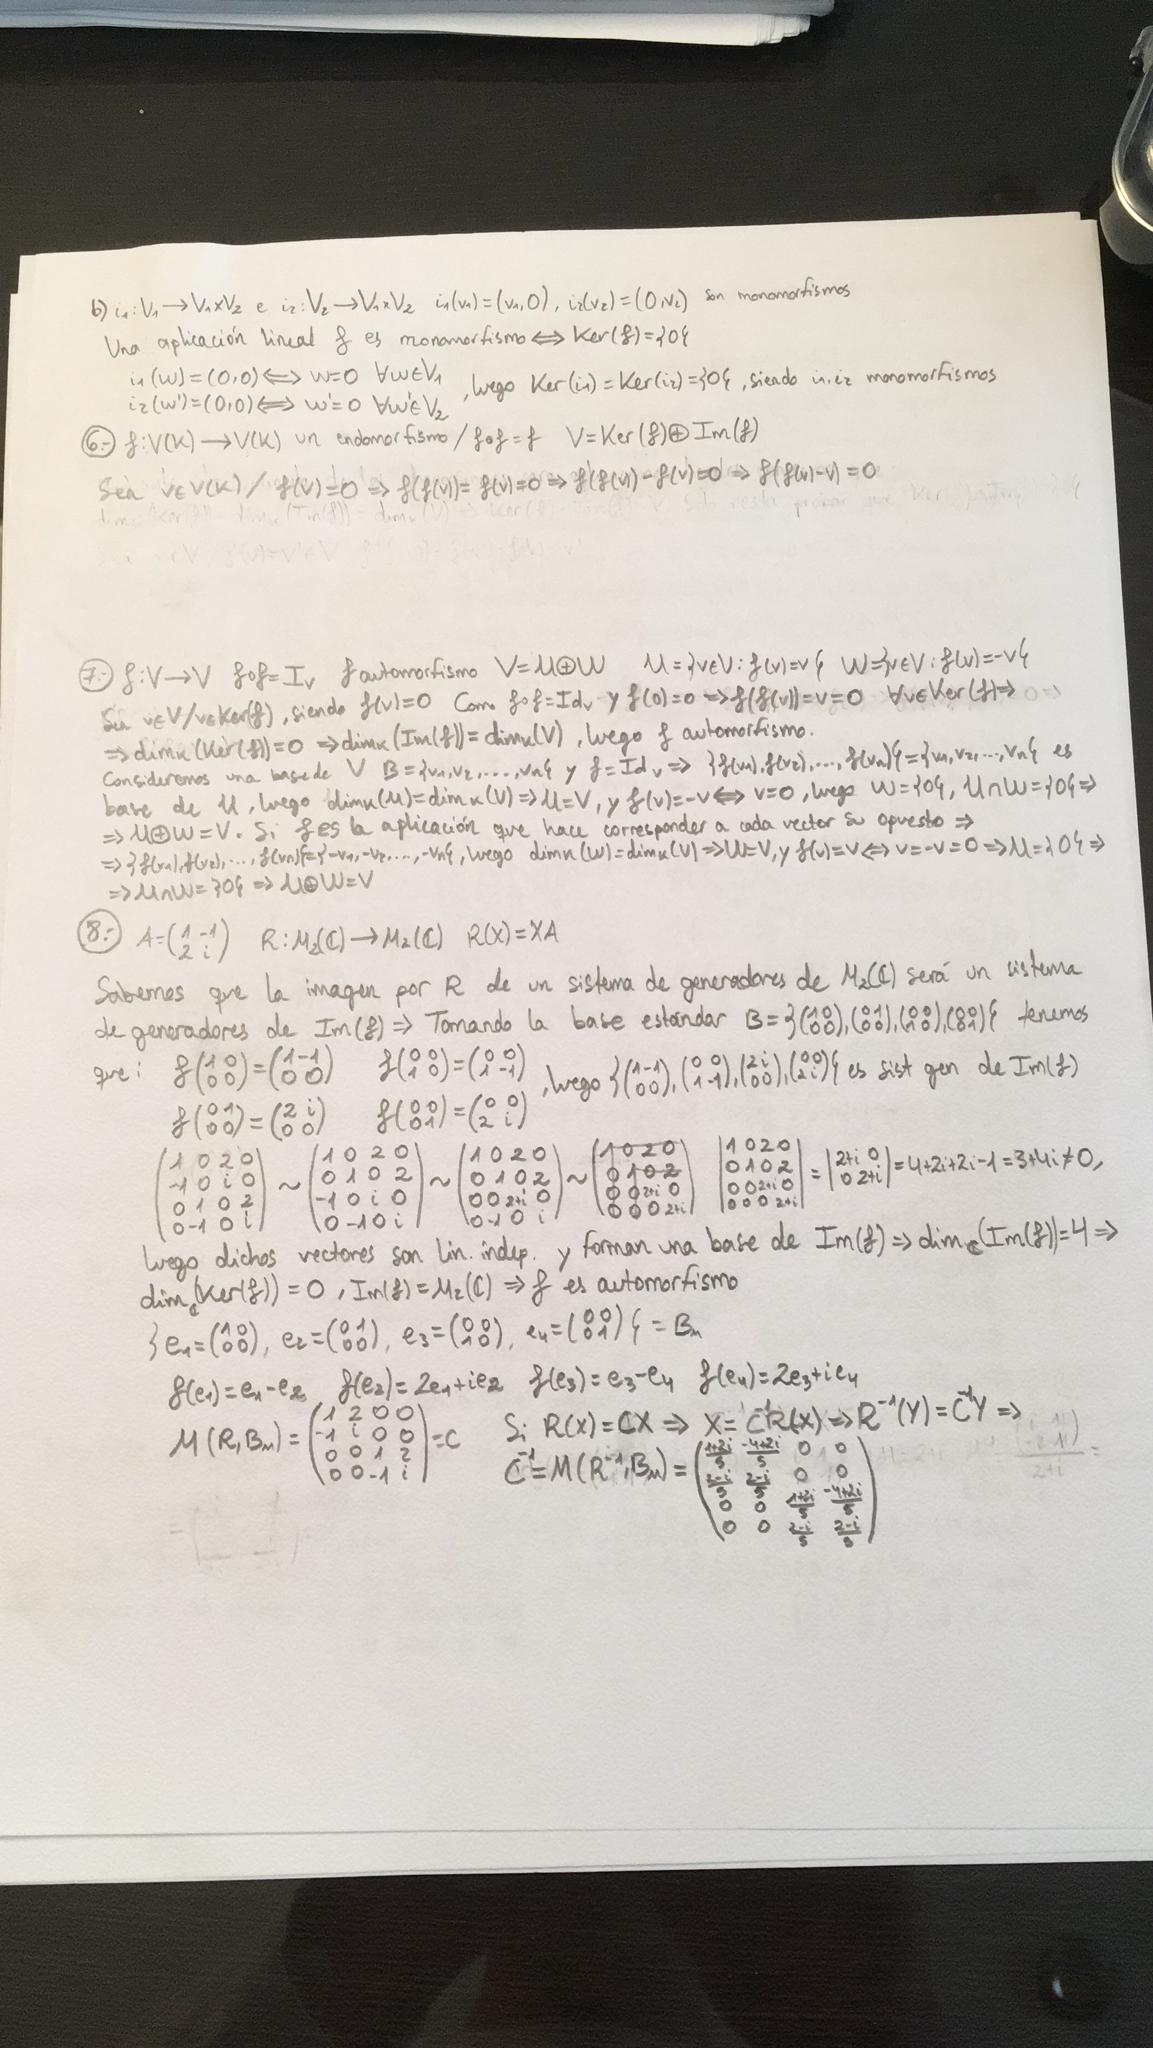 b) i₁: V₁ → V₁×V₂ e i₂: V₂ → V₁×V₂ i₁(v₁)=(v₁,0), i₂(v₂)=(0,v₂) son monomorfismos
Una aplicación lineal f es monomorfismo ⇔ Ker(f)={0}
i₁(w)=(0,0) ⇔ w=0 ∀w∈V₁
i₂(w')=(0,0) ⇔ w'=0 ∀w'∈V₂, luego Ker(i₁)=Ker(i₂)={0}, siendo i₁,i₂ monomorfismos
6.- f: V(K) → V(K) un endomorfismo / f∘f=f V=Ker(f)⊕Im(f)
Sea v∈V(K) / f(v)=0 ⇒ f(f(v))=f(v)=0 ⇒ f(f(v))-f(v)=0 ⇒ f(f(v)-v)=0
7.- f: V → V f∘f=Iᵥ f automorfismo V=U⊕W U={v∈V: f(v)=v} W={v∈V: f(v)=-v}
Sea v∈V/v∈Ker(f), siendo f(v)=0 Como f∘f=Idᵥ y f(0)=0 ⇒ f(f(v))=v=0 ∀v∈Ker(f) ⇒
⇒ dimₖ(Ker(f))=0 ⇒ dimₖ(Im(f))=dimₖ(V), luego f automorfismo.
Consideremos una base de V B={v₁,v₂,...,vₙ} y f=Idᵥ ⇒ {f(v₁),f(v₂),...,f(vₙ)}={v₁,v₂,...,vₙ} es
base de U, luego dimₖ(U)=dimₖ(V) ⇒ U=V, y f(v)=-v ⇔ v=0, luego W={0}, U∩W={0} ⇒
⇒ U⊕W=V. Si f es la aplicación que hace corresponder a cada vector su opuesto ⇒
⇒ {f(v₁),f(v₂),...,f(vₙ)}={-v₁,-v₂,...,-vₙ}, luego dimₖ(W)=dimₖ(V) ⇒ W=V, y f(v)=v ⇔ v=-v=0 ⇒ U={0} ⇒
⇒ U∩W={0} ⇒ U⊕W=V
8.- A=(1 -1; 2 i) R: M₂(ℂ) → M₂(ℂ) R(X)=XA
Sabemos que la imagen por R de un sistema de generadores de M₂(ℂ) será un sistema
de generadores de Im(f) ⇒ Tomando la base estándar B={(1 0; 0 0),(0 1; 0 0),(0 0; 1 0),(0 0; 0 1)} tenemos
que: f(1 0; 0 0)=(1 -1; 0 0) f(0 0; 1 0)=(0 0; 1 -1), luego {(1 -1; 0 0),(0 0; 1 -1),(2 i; 0 0),(0 0; 2 i)} es sist gen de Im(f)
f(0 1; 0 0)=(2 i; 0 0) f(0 0; 0 1)=(0 0; 2 i)
(1 0 2 0; -1 0 i 0; 0 1 0 2; 0 -1 0 i) ~ (1 0 2 0; 0 1 0 2; -1 0 i 0; 0 -1 0 i) ~ (1 0 2 0; 0 1 0 2; 0 0 2+i 0; 0 -1 0 i) ~ (1 0 2 0; 0 1 0 2; 0 0 2+i 0; 0 0 0 2+i) |1 0 2 0; 0 1 0 2; 0 0 2+i 0; 0 0 0 2+i| = |2+i 0; 0 2+i| = 4+2i+2i-1=3+4i≠0,
luego dichos vectores son lin. indep. y forman una base de Im(f) ⇒ dim_ℂ(Im(f))=4 ⇒
dim_ℂ(Ker(f))=0, Im(f)=M₂(ℂ) ⇒ f es automorfismo
{e₁=(1 0; 0 0), e₂=(0 1; 0 0), e₃=(0 0; 1 0), e₄=(0 0; 0 1)} = Bᵤ
f(e₁)=e₁-e₂ f(e₂)=2e₁+ie₂ f(e₃)=e₃-e₄ f(e₄)=2e₃+ie₄
M(R,Bᵤ)=(1 2 0 0; -1 i 0 0; 0 0 1 2; 0 0 -1 i)=C Si R(X)=CX ⇒ X=C⁻¹R(X) ⇒ R⁻¹(Y)=C⁻¹Y ⇒
C⁻¹=M(R⁻¹,Bᵤ)=((1+2i)/5 (-4+2i)/5 0 0; (2-i)/5 (2-i)/5 0 0; 0 0 (1+2i)/5 (-4+2i)/5; 0 0 (2-i)/5 (2-i)/5)